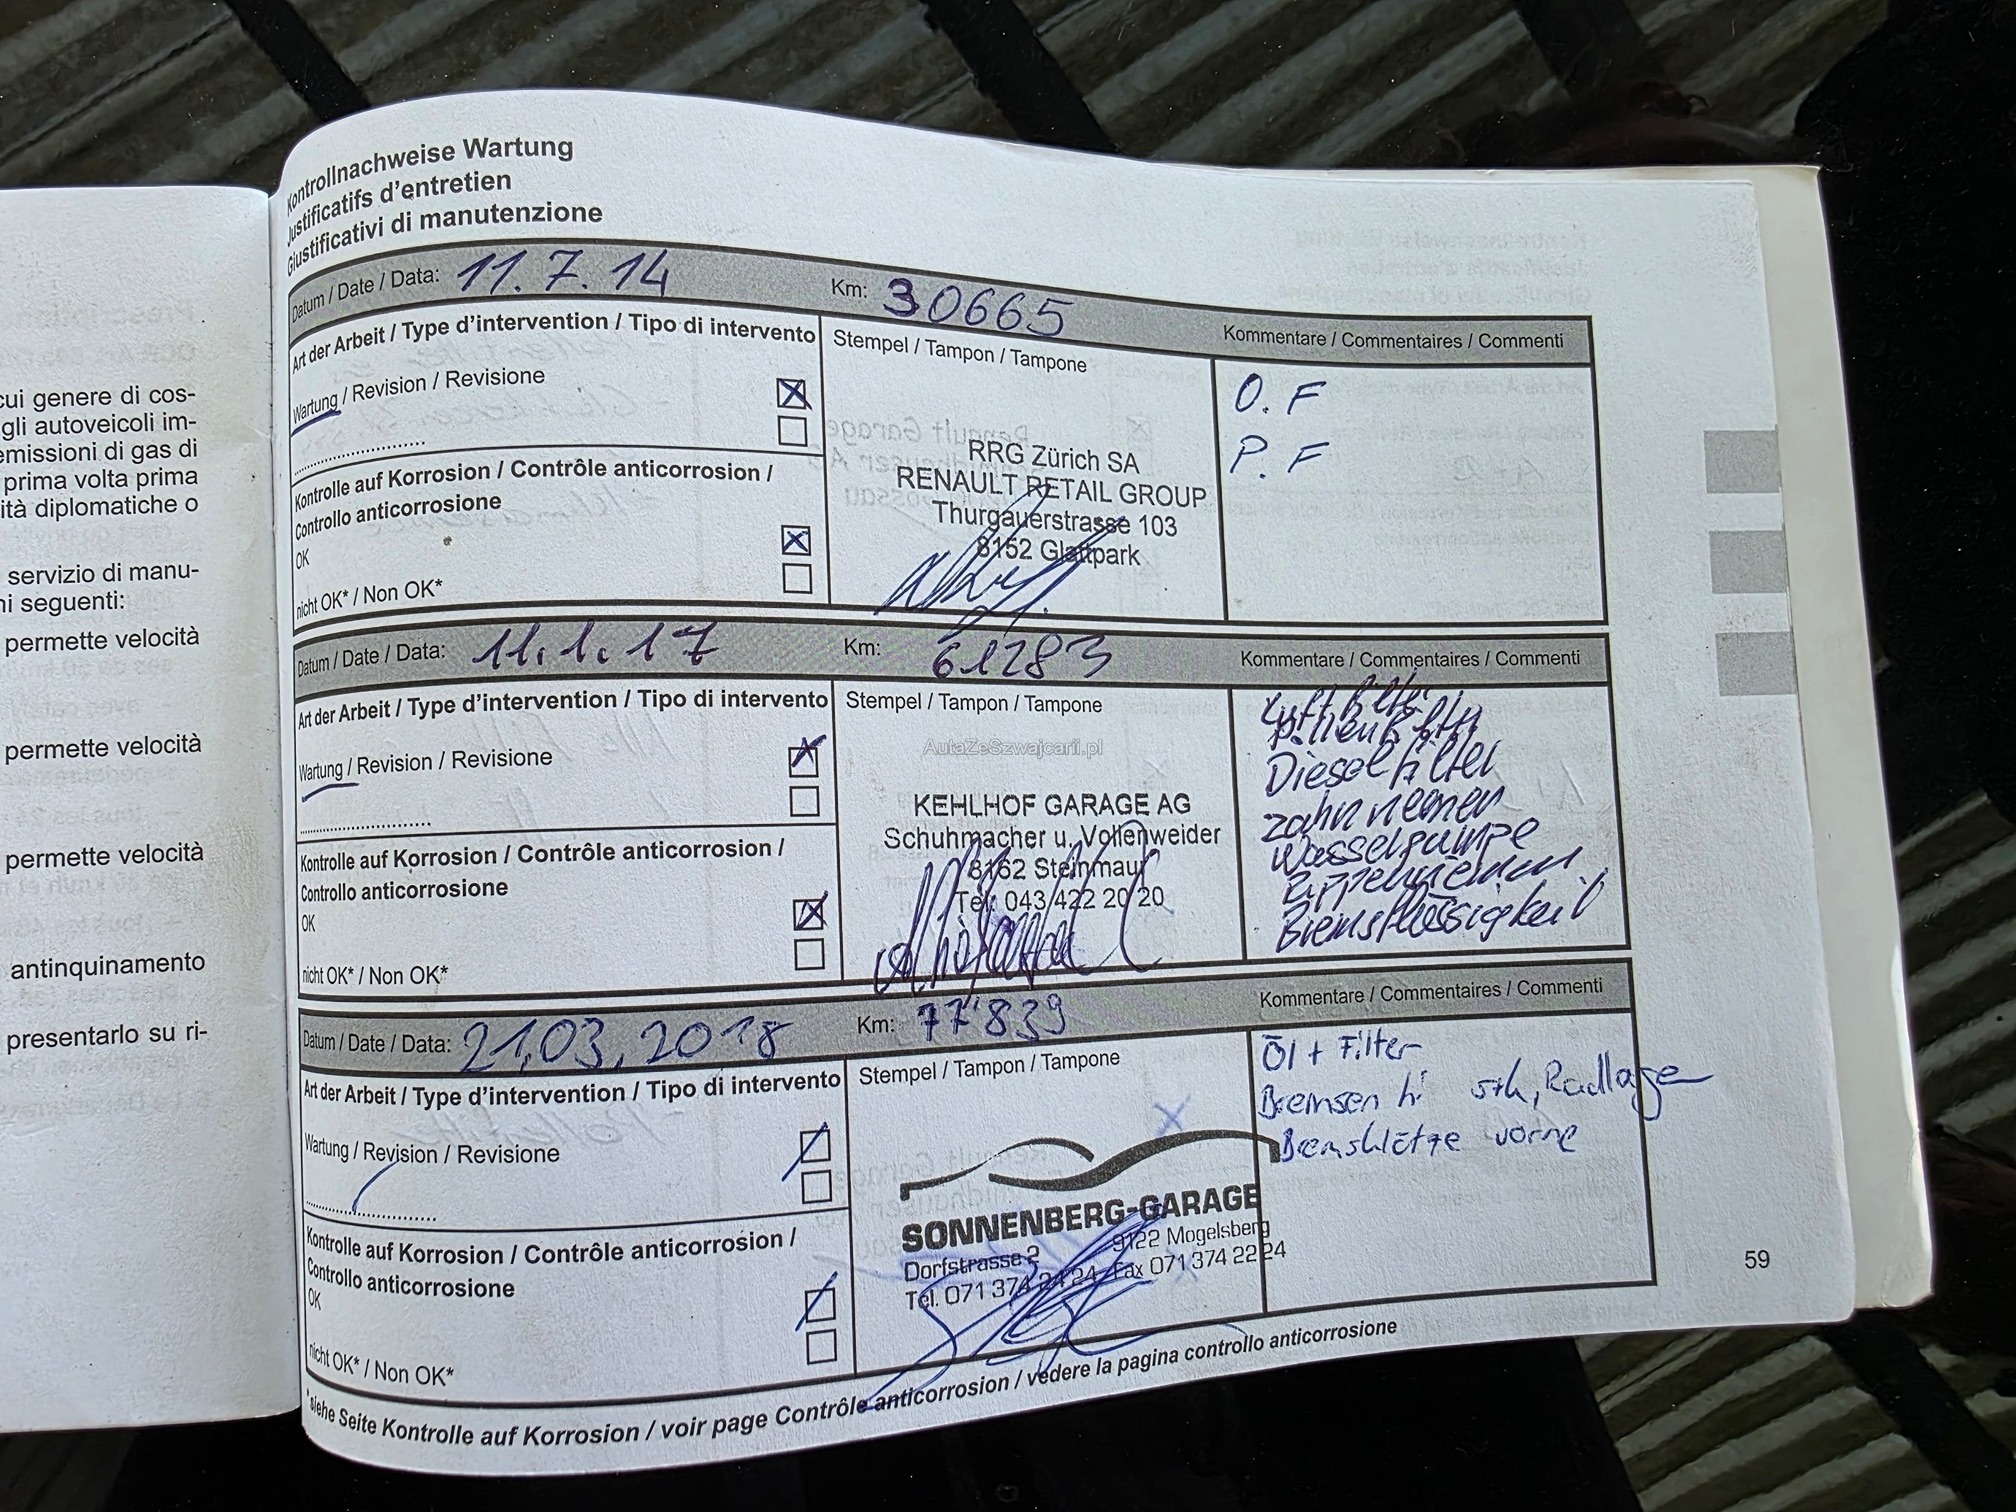 cui genere di cos-
gli autoveicoli im-
emissioni di gas di
prima volta prima
ità diplomatiche o
servizio di manu-
ni seguenti:
permette velocità
permette velocità
permette velocità
antinquinamento
presentarlo su ri-
Kontrollnachweise Wartung
Justificatifs d'entretien
Giustificativi di manutenzione
Datum / Date / Data: 11.7.14 Km: 30665
Kommentare / Commentaires / Commenti
Art der Arbeit / Type d'intervention / Tipo di intervento
Stempel / Tampon / Tampone
Wartung / Revision / Revisione
O. F
P. F
RRG Zürich SA
RENAULT RETAIL GROUP
Thurgauerstrasse 103
8152 Glattpark
Kontrolle auf Korrosion / Contrôle anticorrosion /
Controllo anticorrosione
OK
nicht OK* / Non OK*
Datum / Date / Data: 11.1.17 Km: 61283
Kommentare / Commentaires / Commenti
Art der Arbeit / Type d'intervention / Tipo di intervento
Stempel / Tampon / Tampone
Wartung / Revision / Revisione
AutaZeSzwajcarii.pl
KEHLHOF GARAGE AG
Schuhmacher u. Vollenweider
8162 Steinmaur
Tel. 043/422 20 20
Luftfilter
Pollenfilter
Dieselfilter
Zahnriemen
Wasserpumpe
Rippenriemen
Bremsflüssigkeit
Kontrolle auf Korrosion / Contrôle anticorrosion /
Controllo anticorrosione
OK
nicht OK* / Non OK*
Datum / Date / Data: 21.03.2018 Km: 77'839
Kommentare / Commentaires / Commenti
Art der Arbeit / Type d'intervention / Tipo di intervento
Stempel / Tampon / Tampone
Wartung / Revision / Revisione
Öl + Filter
Bremsen hi Radlager
Bremsklötze vorne
SONNENBERG-GARAGE
Dorfstrasse 2 9122 Mogelsberg
Tel. 071 374 24 24 Fax 071 374 22 24
Kontrolle auf Korrosion / Contrôle anticorrosion /
Controllo anticorrosione
OK
nicht OK* / Non OK*
*siehe Seite Kontrolle auf Korrosion / voir page Contrôle anticorrosion / vedere la pagina controllo anticorrosione
59